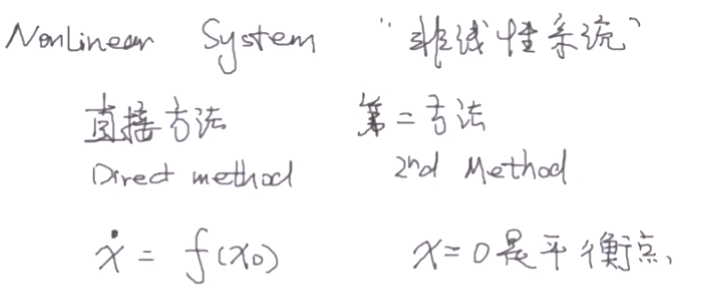 NonLinear System "非线性系统"
直接方法 第二方法
Direct method 2nd Method
ẋ = f(x₀) x=0是平衡点、